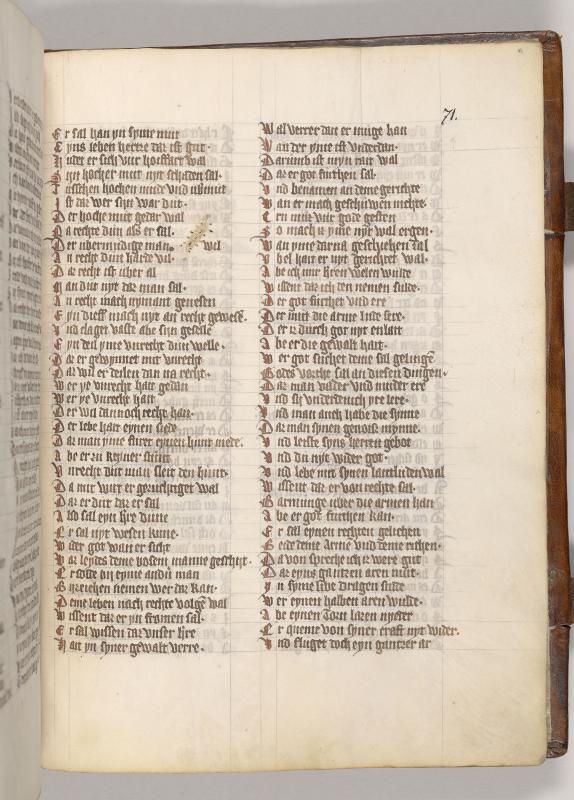 71.
Er sal han yn syme mut
Tyns leben herre daz ist gut.
Hudet er sich vur hoiffart wal
Syn hocher mut nyt schaden sal.
Tusschen hochen mude vnd
Ist daz wer syn war dut.
Der hoche mut gedar wal
Da rechte dun als er sal.
Der vbermudige man wil
An recht dun harde vil.
Daz recht ist vber al
Man dut nyt daz man sal.
An recht mach nymant genesen
Eyn dieff mach nyt an recht gewesē.
Vnd claget vaste abe syn geselle
Eyn deil yme vnrechte dun welle.
Daz er gewynnet mit vnrecht
Daz wil er deilen dan na recht.
Wer ye vnrecht hatt gedan
Wer ye vnrecht hatt
Der wil dannoch recht han.
Der lebe hatt eynen siede
Daz man yme sturet eynen hunt mede.
Abe er zu keyner stunt
Vnrecht dut man sleit den hunt.
Da mit wirt er gezuchtiget wal
Daz er dut daz er sal.
Also sal eyn here dune
Er sal nyt wesen kune.
Wider got wan er sicht
Waz leydes deme bosen manne geschyt.
Er solde by eyme andern man
Bitzeichen nemen wer daz kan.
Deme leben nach recht volgē wal
Wissent daz er yn fromen sal.
Er sal wissen daz vnser here
Hatt yn syner gewalt verre.
Wal verrer dan er muge han
Van der yme ist vnderdan.
Darumb ist myn rait wal
Daz er got furchten sal.
Vnd benamen an deme gerichte
Wan er mach geschuwen nichte.
Ern muz vur gode gesten
So mach iz yme nyt wal ergen.
Wan yme darna geschiehen sal
Vbel han er nyt gerichtet wal.
Abe ich mir heren welen wulde
Wissent daz ich den nemen sulde.
Der got furchtet vnd ere
Der mit die arme lude sere.
Der iz durch got nyt enlatt
Abe er die gewalt hatt.
Wer got suchet deme sal gelingē
Godes vorchte sal an diesen dingen.
Daz man vader vnd muder ere
Vnd sy vnderdenich yre lere.
Vnd man auch habe die synne
Daz man synen genosse mynne.
Vnd leiste syns herren gebot
Vnd du nyt wider got.
Vnd lebe mit synen lantluden wal
Wissent daz er van rechte sal.
Barmunge vber die armen han
Abe er got furchten kan.
Er sal eynen rechten gelichen
Beide deme arme vnd deme richen.
Da von spreche ich iz were gut
Daz eyns gantzen aren mut.
Yn syme sinne dragen sulde
Wer eynen halben aren wulde.
Abe eynen Torn lazen nyder
Er queme von syner craft nyt wider.
Vnd fluget doch eyn gantzer ar